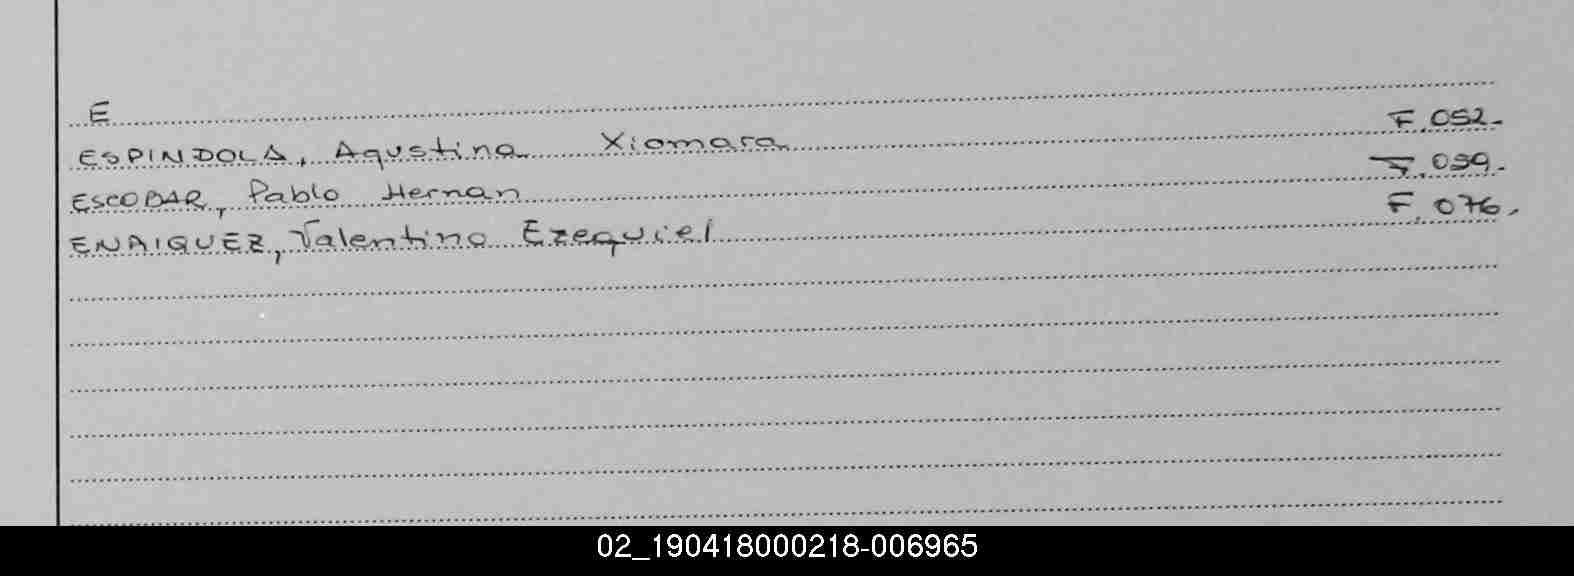 E
ESPINDOLA, Agustina Xiomara F.052.
ESCOBAR, Pablo Hernan F.059.
ENRIQUEZ, Valentino Ezequiel F.076.
02_190418000218-006965